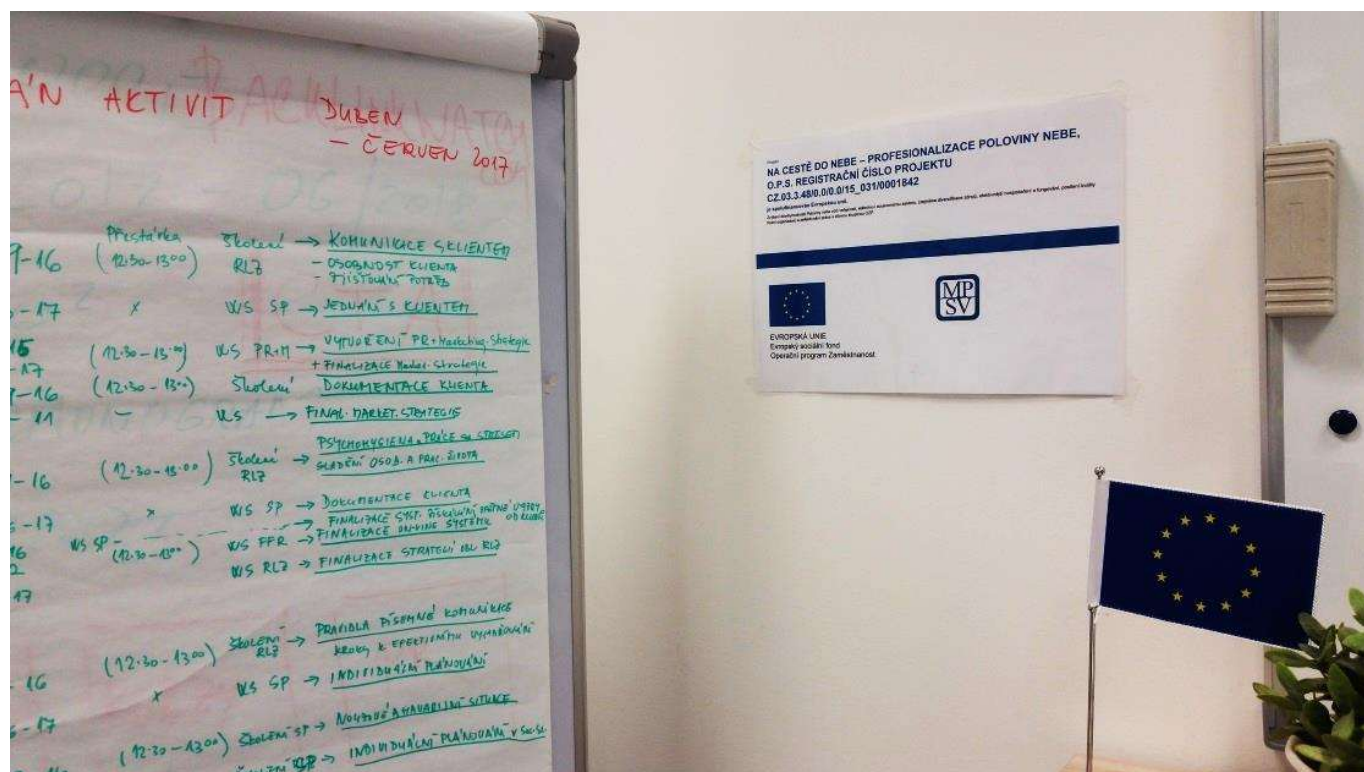 ÁN AKTIVIT DUBEN
– ČERVEN 2017
9-16 Přestávka (12:30-13:00) školení RLZ → KOMUNIKACE S KLIENTEM
- OSOBNOST KLIENTA
- ZJIŠŤOVÁNÍ POTŘEB
-17 x WS SP → JEDNÁNÍ S KLIENTEM
15 (12:30-13:00) WS PR+M → VYTVOŘENÍ PR+Marketing. Strategie
-17 + FINALIZACE Market. Strategie
-16 (12:30-13:00) Školení DOKUMENTACE KLIENTA
-11 – WS → FINAL. MARKET. STRATEGIE
-16 (12:30-13:00) Školení RLZ → PSYCHOHYGIENA, PRÁCE SE STRESEM
SLADĚNÍ OSOB. A PRAC. ŽIVOTA
-17 x WS SP → DOKUMENTACE KLIENTA
WS SP → FINALIZACE SYST. ZÍSKÁVÁNÍ ZPĚTNÉ VAZBY OD KLIENTŮ
16 (12:30-13:00) WS FFR → FINALIZACE ON-LINE SYSTÉMU
2 WS RLZ → FINALIZACE STRATEGIÍ OBL RLZ
17
-16 (12:30-13:00) ŠKOLENÍ RLZ → PRAVIDLA PÍSEMNÉ KOMUNIKACE
KROKY K EFEKTIVNÍMU VYJADŘOVÁNÍ
-17 x WS SP → INDIVIDUÁLNÍ PLÁNOVÁNÍ
(12:30-13:00) ŠKOLENÍ SP → NOUZOVÉ A HAVARIJNÍ SITUACE
→ INDIVIDUÁLNÍ PLÁNOVÁNÍ v
NA CESTĚ DO NEBE – PROFESIONALIZACE POLOVINY NEBE,
O.P.S. REGISTRAČNÍ ČÍSLO PROJEKTU
CZ.03.3.48/0.0/0.0/15_031/0001842
je spolufinancován Evropskou unií.
MP
SV
EVROPSKÁ UNIE
Evropský sociální fond
Operační program Zaměstnanost